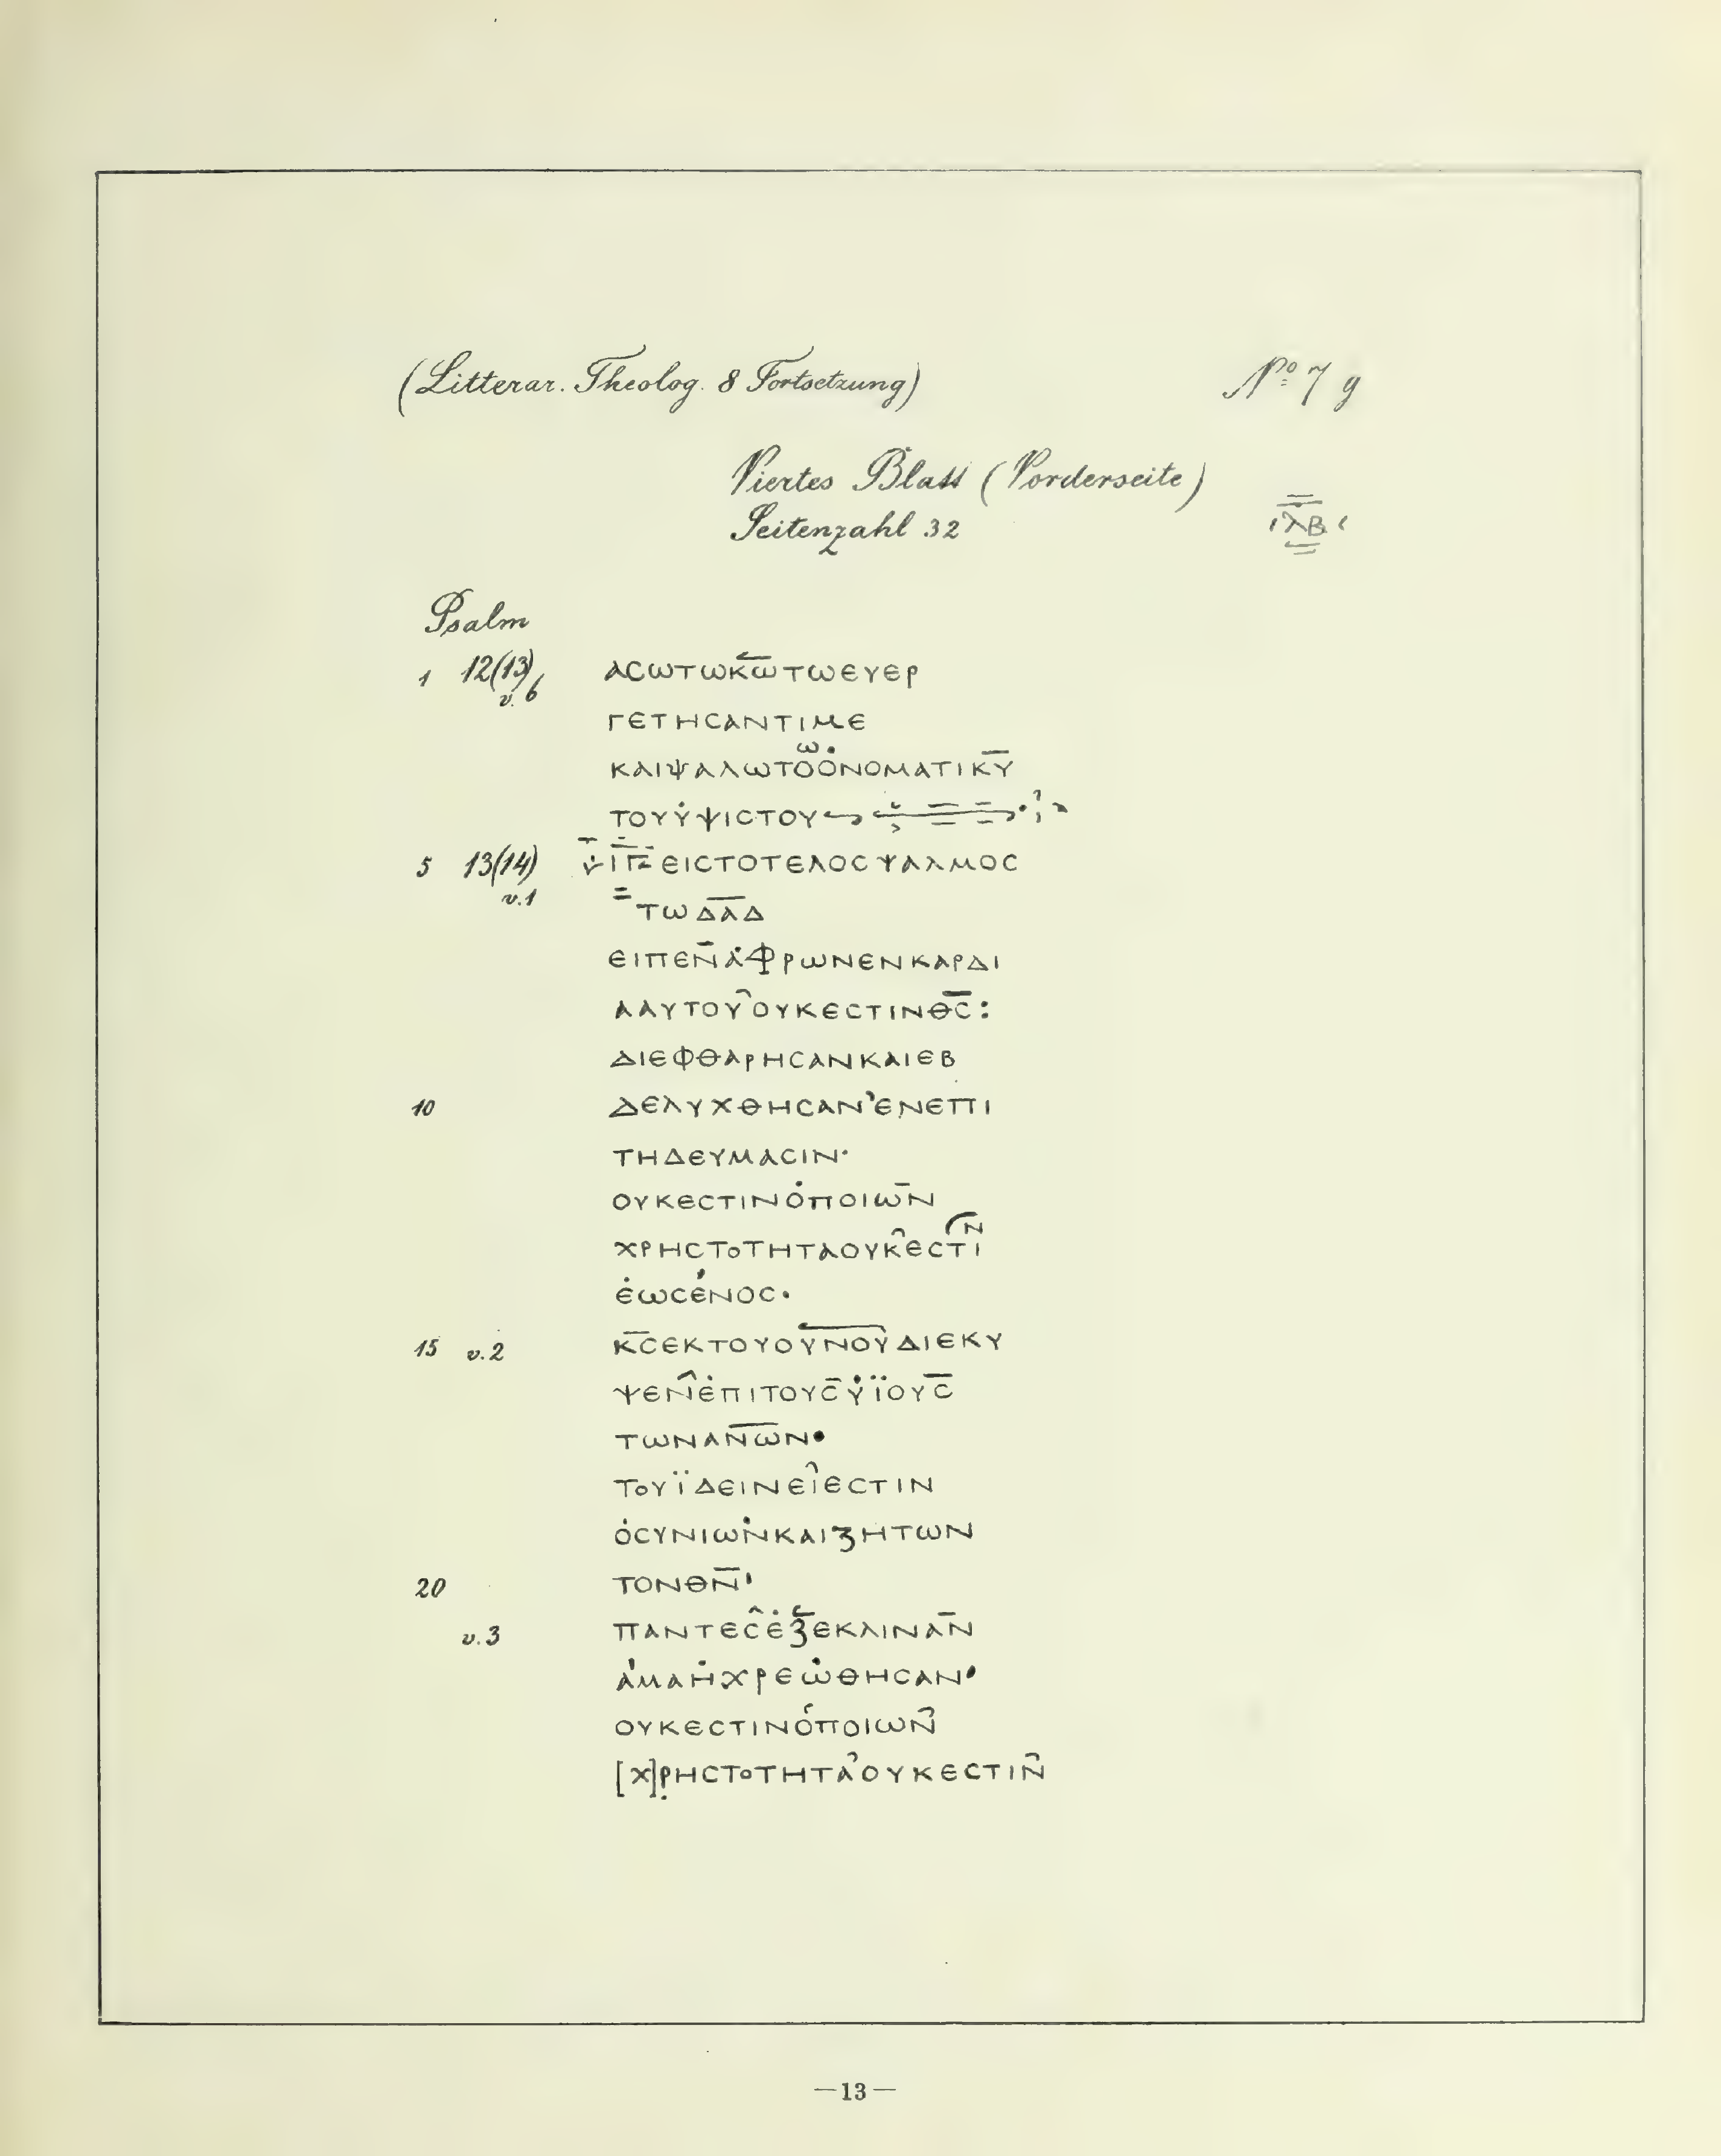 (Litterar. Theolog. 8 Fortsetzung) No 7 g
Viertes Blatt (Vorderseite)
Seitenzahl 32 λΒ
Psalm
1 12(13) v. 6 ΑCΩΤΩΚ̅Ω̅ΤΩΕΥΕΡ
ΓΕΤΗCΑΝΤΙΜΕ
ΚΑΙΨΑΛΩΤΟ`ω´ΟΝΟΜΑΤΙΚ̅Υ̅
ΤΟΥΥΨΙCΤΟΥ
5 13(14) v.1 ΕΙCΤΟΤΕΛΟCΨΑΛΜΟC
ΤΩΔ̅Α̅Δ̅
ΕΙΠΕΝ̅ΑΦΡΩΝΕΝΚΑΡΔΙ
ΑΑΥΤΟΥ ̑ΟΥΚΕCΤΙΝΘ̅C̅:
ΔΙΕΦΘΑΡΗCΑΝΚΑΙΕΒ
10 ΔΕΛΥΧΘΗCΑΝ'ΕΝΕΠΙ
ΤΗΔΕΥΜΑCΙΝ·
ΟΥΚΕCΤΙΝΟ̇ΠΟΙΩ̅Ν
ΧΡΗCΤΟΤΗΤΑΟΥΚ̑ΕCΤΙ`Ν´
Ε̇ΩCΕ̇ΝΟC·
15 v.2 Κ̅C̅ΕΚΤΟΥΟΥ̅Ν̅Ο̅Υ̅ΔΙΕΚΥ
ΨΕΝ̑Ε̇ΠΙΤΟΥC̅Υ̇ΪΟΥC̅
ΤΩΝΑΝ̅Ω̅Ν·
ΤΟΥΪΔΕΙΝΕΙ̑ΕCΤΙΝ
Ο̇CΥΝΙΩΝ̇ΚΑΙΖΗΤΩΝ
20 ΤΟΝΘ̅Ν̅'
v.3 ΠΑΝΤΕC̑Ε̇ΞΕΚΛΙΝΑ̅Ν
ΑΜΑΗ̇ΧΡΕΩ̇ΘΗCΑΝ'
ΟΥΚΕCΤΙΝΟΠΟΙΩΝ̑
[Χ]Ρ̣ΗCΤΟΤΗΤΑ̑ΟΥΚΕCΤΙΝ̑
—13—